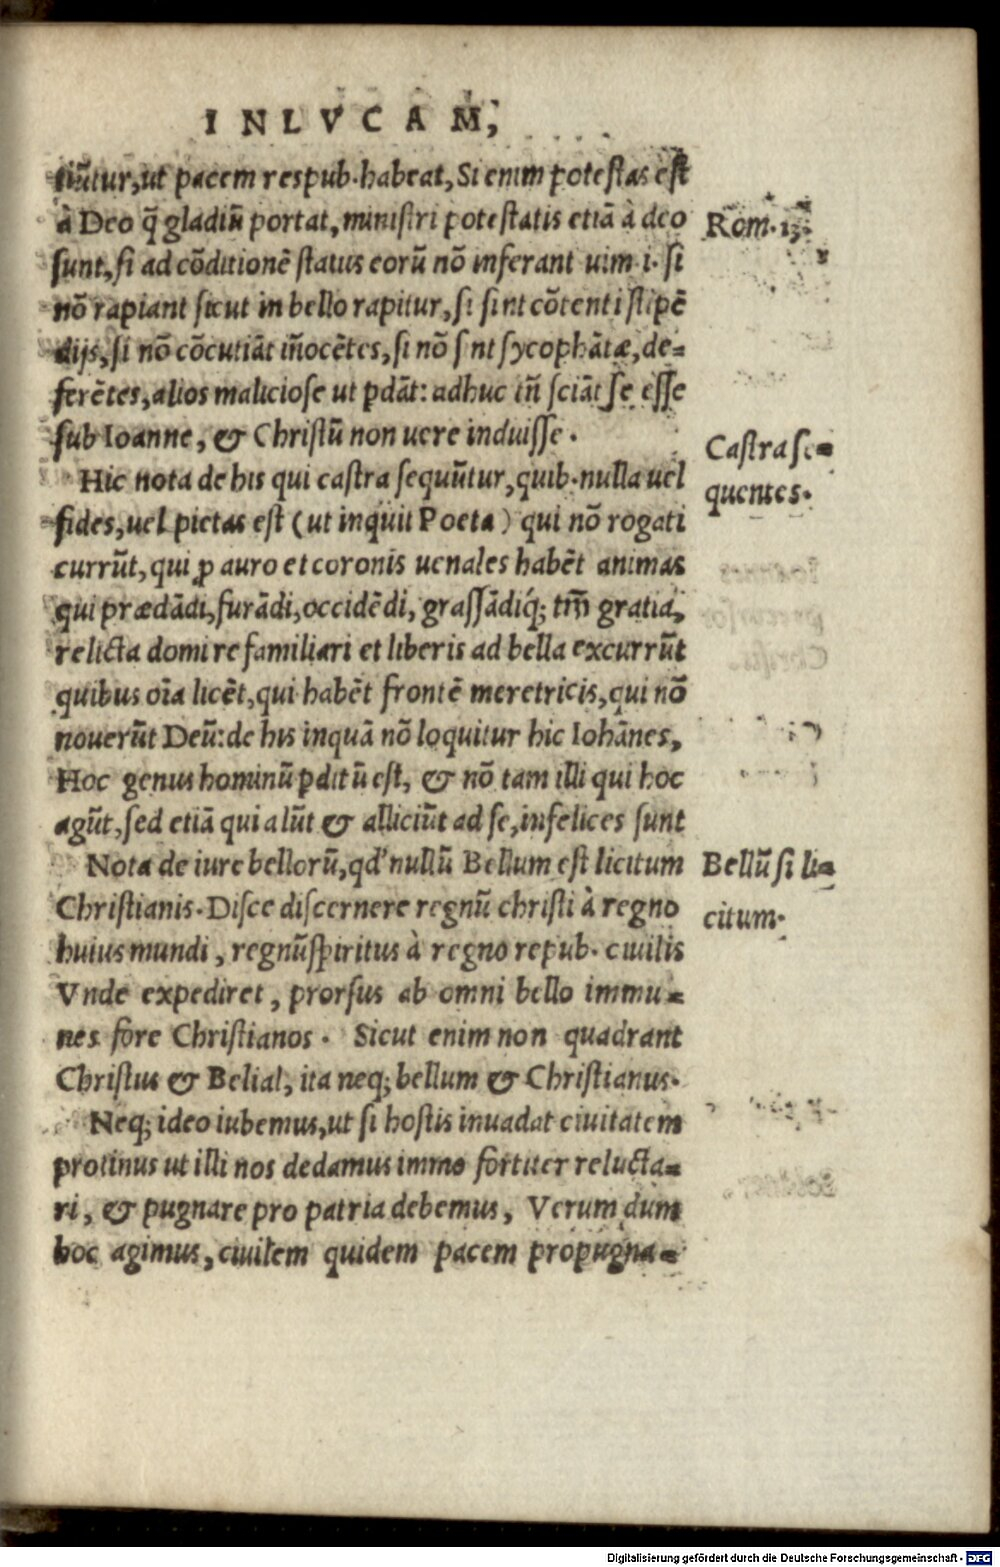 IN LVCAM,
tiũtur, ut pacem respub. habeat, Si enim potestas est
à Deo q̃ gladiũ portat, ministri potestatis etiã à deo
sunt, si ad cõditionẽ status eorũ nõ inferant uim .i. si
nõ rapiant sicut in bello rapitur, si sint cõtenti stipẽ
dijs, si nõ cõcutiãt iñocẽtes, si nõ sint sycophãtæ, de=
ferẽtes, alios maliciose ut ꝑdãt: adhuc tñ sciãt se esse
sub Ioanne, & Christũ non uere induisse.
Hic nota de his qui castra sequũtur, quib. nulla uel
fides, uel pietas est (ut inquit Poeta) qui nõ rogati
currũt, qui ꝓ auro et coronis uenales habẽt animas
qui prædãdi, furãdi, occidẽdi, grassãdiq́; tm̃ gratia,
relicta domi re familiari et liberis ad bella excurrũt
quibus oĩa licẽt, qui habẽt frontẽ meretricis, qui nõ
nouerũt Deũ: de his inquã nõ loquitur hic Iohãnes,
Hoc genus hominũ ꝑditũ est, & nõ tam illi qui hoc
agũt, sed etiã qui alũt & alliciũt ad se, infelices sunt
Nota de iure bellorũ, qd' nullũ Bellum est licitum
Christianis. Disce discernere regnũ christi à regno
huius mundi, regnũ spiritus à regno repub. ciuilis
Vnde expediret, prorsus ab omni bello immu=
nes fore Christianos. Sicut enim non quadrant
Christus & Belial, ita neq; bellum & Christianus.
Neq; ideo iubemus, ut si hostis inuadat ciuitatem
protinus ut illi nos dedamus immo fortiter relucta=
ri, & pugnare pro patria debemus, Verum dum
hoc agimus, ciuilem quidem pacem propugna=
Rom. 13.
Castra se=
quentes.
Bellũ si li=
citum.
Digitalisierung gefördert durch die Deutsche Forschungsgemeinschaft - DFG